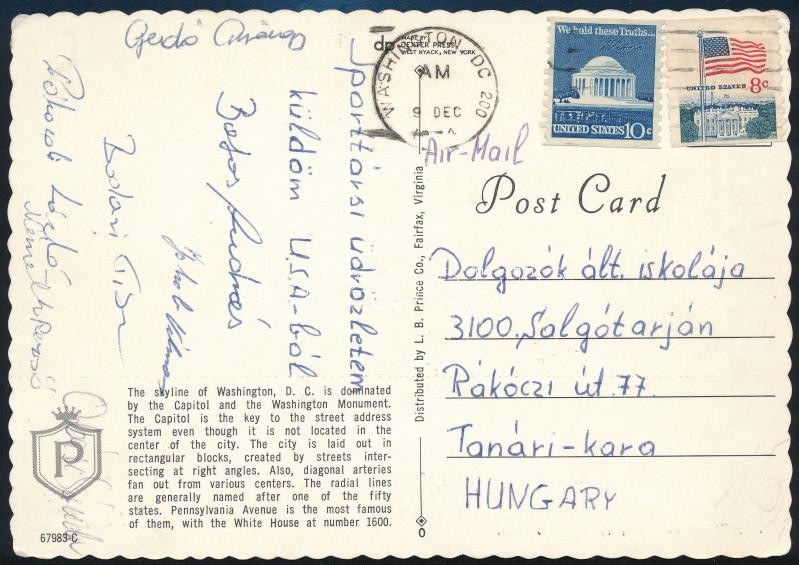 Gedó György
dp
MADE BY
DEXTER PRESS
WEST NYACK, NEW YORK
WASHINGTON DC 200
AM
9 DEC
We hold these Truths...
UNITED STATES 10c
UNITED STATES 8c
Air-Mail
Sporttársi üdvözletem
küldöm U.S.A-ból
Botos András
Jakab Kálmán
Post Card
Dolgozók ált. iskolája
3100. Salgótarján
Rákóczi út. 77.
Tanári-kara
HUNGARY
The skyline of Washington, D. C. is dominated
by the Capitol and the Washington Monument.
The Capitol is the key to the street address
system even though it is not located in the
center of the city. The city is laid out in
rectangular blocks, created by streets inter-
secting at right angles. Also, diagonal arteries
fan out from various centers. The radial lines
are generally named after one of the fifty
states. Pennsylvania Avenue is the most famous
of them, with the White House at number 1600.
P
67983-C
Distributed by L. B. Prince Co., Fairfax, Virginia